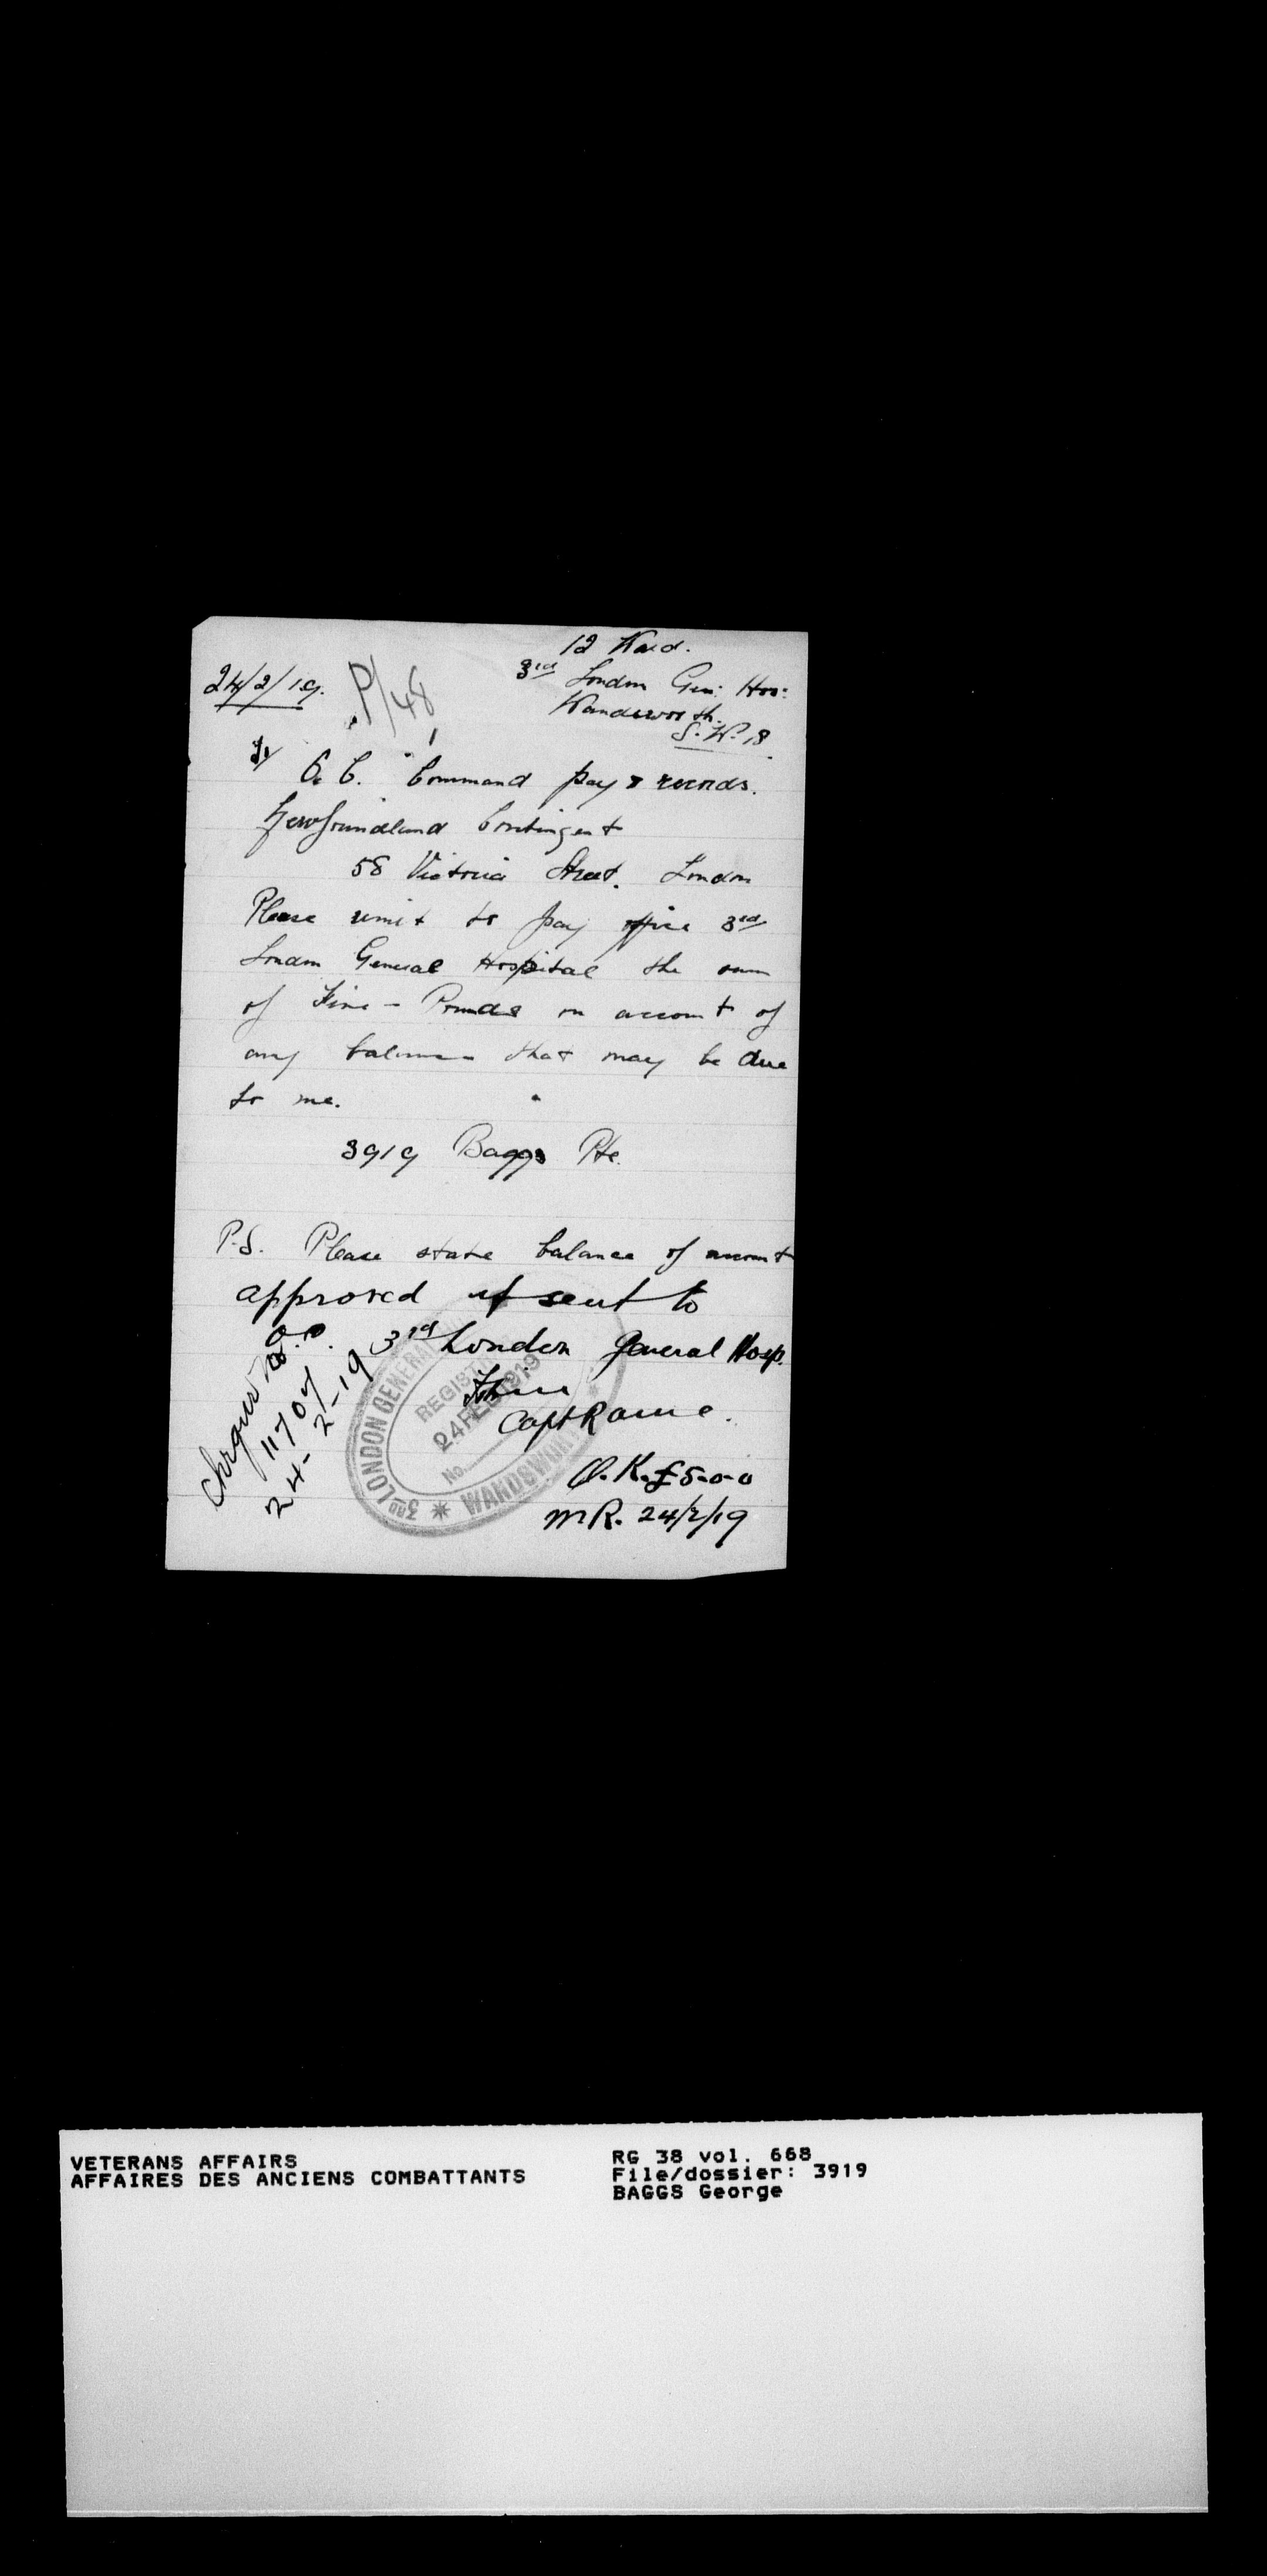 12 Ward.
3rd London Gen: Hos:
Wandsworth.
S.W. 18.
24/2/19.
P/48
O. C. Command pay & records.
Newfoundland Contingent
58 Victoria Street. London
Please remit to pay office 3rd
London General Hospital the sum
of Five - Pounds on account of
any balance that may be due
to me.
3919 Baggs Pte.
P.S. Please state balance of account
approved if sent to
3rd London General Hosp.
Capt RAMC.
O.K. £5-0-0
MR. 24/2/19
Cheque
11704
24-2-19
3RD LONDON GENERAL
REGISTR
24 FEB 1919
No
WANDSWORTH
VETERANS AFFAIRS
AFFAIRES DES ANCIENS COMBATTANTS
RG 38 vol. 668
File/dossier: 3919
BAGGS George